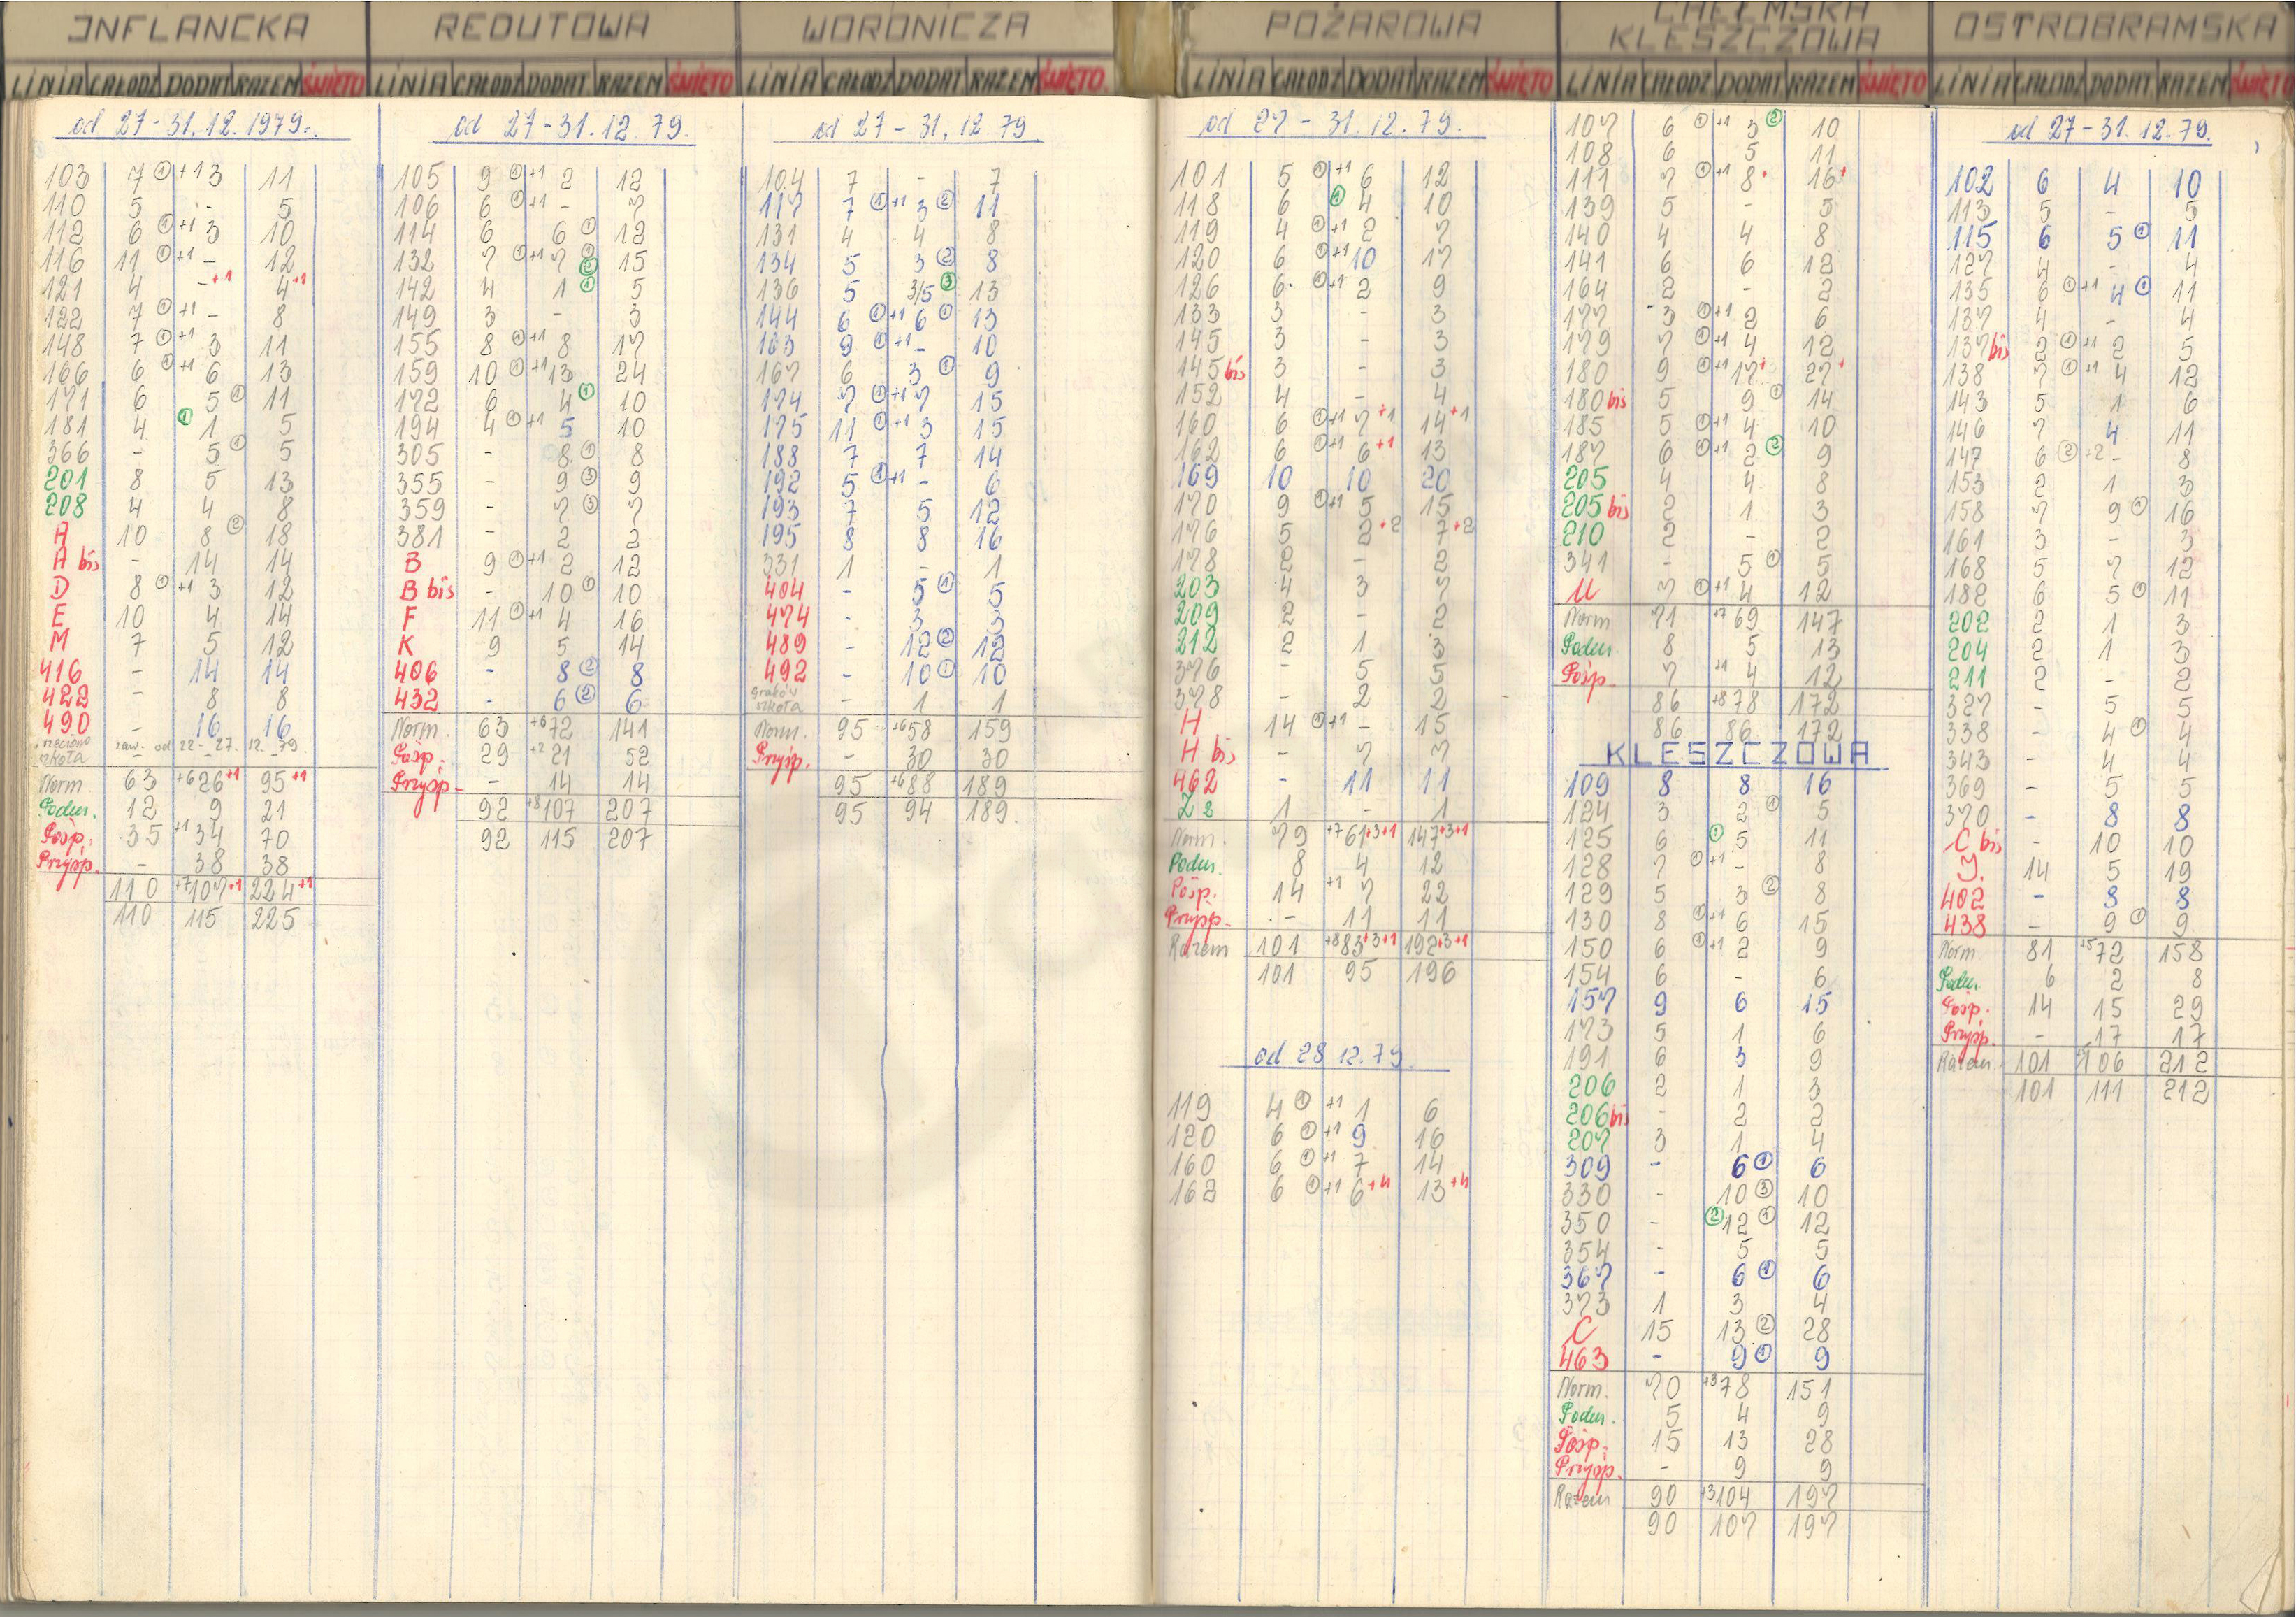 INFLANCKA
LINIA CAŁODZ DODAT RAZEM ŚWIĘTO
od 27-31.12.1979r.
103 7 ① +1 3 11
110 5 - 5
112 6 ① +1 3 10
116 11 ① +1 - 12
121 4 - +1 4 +1
122 7 ① +1 - 8
148 7 ① +1 3 11
166 6 ① +1 6 13
171 6 5 ① 11
181 4 ① 1 5
366 - 5 ① 5
201 8 5 13
208 4 4 8
A 10 8 ② 18
A bis - 14 14
D 8 ① +1 3 12
E 10 4 14
M 7 5 12
416 - 14 14
422 - 8 8
490 - 16 16
szkoła zaw. od 22-27.12.79.
Norm 63 +6 26 +1 95 +1
Podm. 12 9 21
Pośp. 35 +1 34 70
Przysp. - 38 38
110 +7 107 +1 224 +1
110 115 225
REDUTOWA
LINIA CAŁODZ DODAT RAZEM ŚWIĘTO
od 27-31.12.79.
105 9 ① +1 2 12
106 6 ① +1 - 7
114 6 6 ① 12
132 7 ① +1 7 ① ② 15
142 4 1 ① 5
149 3 - 3
155 8 ① +1 8 17
159 10 ① +1 13 24
172 6 4 ① 10
194 4 ① +1 5 10
305 - 8 ① 8
355 - 9 ③ 9
359 - 7 ③ 7
381 - 2 2
B 9 ① +1 2 12
B bis - 10 ① 10
F 11 ① +1 4 16
K 9 5 14
406 - 8 ② 8
432 - 6 ② 6
Norm. 63 +6 72 141
Pośp. 29 +2 21 52
Przysp. - 14 14
92 +8 107 207
92 115 207
WORONICZA
LINIA CAŁODZ DODAT RAZEM ŚWIĘTO
od 27-31.12.79
104 7 - 7
117 7 ① +1 3 ② 11
131 4 4 8
134 5 3 ② 8
136 5 3/5 ③ 13
144 6 ① +1 6 ① 13
163 9 ① +1 - 10
167 6 3 ① 9
174 7 ① +1 7 15
175 11 ① +1 3 15
188 7 7 14
192 5 ① +1 - 6
193 7 5 12
195 8 8 16
331 1 - 1
404 - 5 ① 5
474 - 3 3
489 - 12 ② 12
492 - 10 ① 10
szkoła - 1 1
Norm. 95 +6 58 159
Przysp. - 30 30
95 +6 88 189
95 94 189
POŻAROWA
LINIA CAŁODZ DODAT RAZEM ŚWIĘTO
od 27-31.12.79.
101 5 ① +1 6 12
118 6 ① 4 10
119 4 ① +1 2 7
120 6 ① +1 10 17
126 6 ① +1 2 9
133 3 - 3
145 3 - 3
145 bis 3 - 3
152 4 - 4
160 6 ① +1 7 +1 14 +1
162 6 ① +1 6 +1 13
169 10 10 20
170 9 ① +1 5 15
176 5 2 +2 7 +2
178 2 - 2
203 4 3 7
209 2 - 2
212 2 1 3
376 - 5 5
378 - 2 2
H 14 ① +1 - 15
H bis - 7 7
462 - 11 11
Z2 1 - 1
Norm. 79 +7 61 +3+1 147 +3+1
Podm. 8 4 12
Pośp. 14 +1 7 22
Przysp. - 11 11
Razem 101 +8 83 +3+1 192 +3+1
101 95 196
od 28.12.79
119 4 ① +1 1 6
120 6 ① +1 9 16
160 6 ① +1 7 14
162 6 ① +1 6 +4 13 +4
CHEŁMSKA
KLESZCZOWA
LINIA CAŁODZ DODAT RAZEM ŚWIĘTO
107 6 ① +1 3 ② 10
108 6 5 11
111 7 ① +1 8 16
139 5 - 5
140 4 4 8
141 6 6 12
164 2 - 2
177 3 ① +1 2 6
179 7 ① +1 4 12
180 9 ① +1 17 27
180 bis 5 9 ① 14
185 5 ① +1 4 10
187 6 ① +1 2 ② 9
205 4 4 8
205 bis 2 1 3
210 2 - 2
341 - 5 ① 5
U 7 ① +1 4 12
Norm 71 +7 69 147
Podm. 8 5 13
Pośp. 7 +1 4 12
86 +8 78 172
86 86 172
KLESZCZOWA
109 8 8 16
124 3 2 ① 5
125 6 ① 5 11
128 7 ① +1 - 8
129 5 3 ② 8
130 8 ① +1 6 15
150 6 ① +1 2 9
154 6 - 6
157 9 6 15
173 5 1 6
191 6 3 9
206 2 1 3
206 bis - 2 2
207 3 1 4
309 - 6 ① 6
330 - 10 ③ 10
350 - ② 12 ① 12
354 - 5 5
367 - 6 ① 6
373 1 3 4
C 15 13 ② 28
463 - 9 ① 9
Norm. 70 +3 78 151
Podm. 5 4 9
Pośp. 15 13 28
Przysp. - 9 9
Razem 90 +3 104 197
90 107 197
OSTROBRAMSKA
LINIA CAŁODZ DODAT RAZEM ŚWIĘTO
od 27-31.12.79.
102 6 4 10
113 5 - 5
115 6 5 ① 11
127 4 - 4
135 6 ① +1 4 ① 11
137 4 - 4
137 bis 2 ① +1 2 5
138 7 ① +1 4 12
143 5 1 6
146 7 4 11
147 6 ② +2 - 8
153 2 1 3
158 7 9 ① 16
161 3 - 3
168 5 7 12
182 6 5 ① 11
202 2 1 3
204 2 1 3
211 2 - 2
327 - 5 5
338 - 4 ① 4
343 - 4 4
369 - 5 5
370 - 8 8
C bis - 10 10
J. 14 5 19
402 - 8 8
438 - 9 ① 9
Norm 81 +5 72 158
Podm. 6 2 8
Pośp. 14 15 29
Przysp. - 17 17
Razem 101 106 212
101 111 212